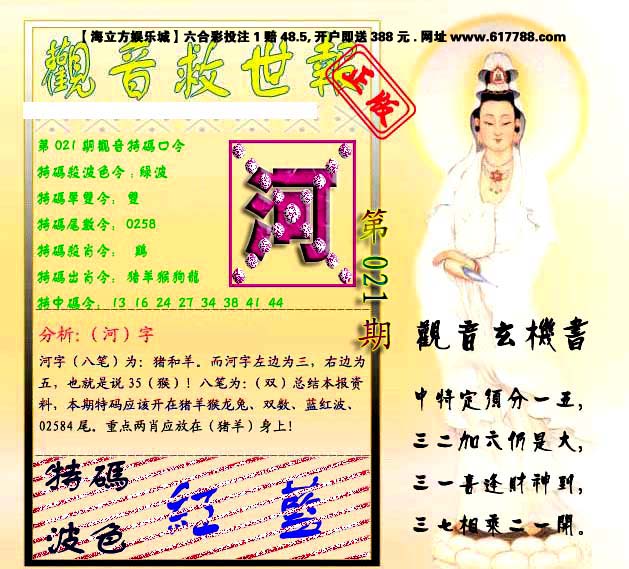 【海立方娱乐城】六合彩投注1赔48.5,开户即送388元.网址www.617788.com
觀音救世報
正版
第021期觀音特碼口令
特碼殺波色令:綠波
特碼單雙令: 雙
特碼尾數令: 0258
特碼殺肖令: 鷄
特碼出肖令: 豬羊猴狗龍
特中碼令: 13 16 24 27 34 38 41 44
河
第021期
分析:（河）字
河字（八笔）为：猪和羊。而河字左边为三，右边为
五，也就是说35（猴）！八笔为：（双）总结本报资
料，本期特码应该开在猪羊猴龙兔、双数、蓝红波、
02584尾。重点两肖应放在（猪羊）身上！
特碼
波色
紅 藍
觀音玄機書
中特定須分一五,
三二加六仍是大,
三一喜逢財神到,
三七相乘二一開。